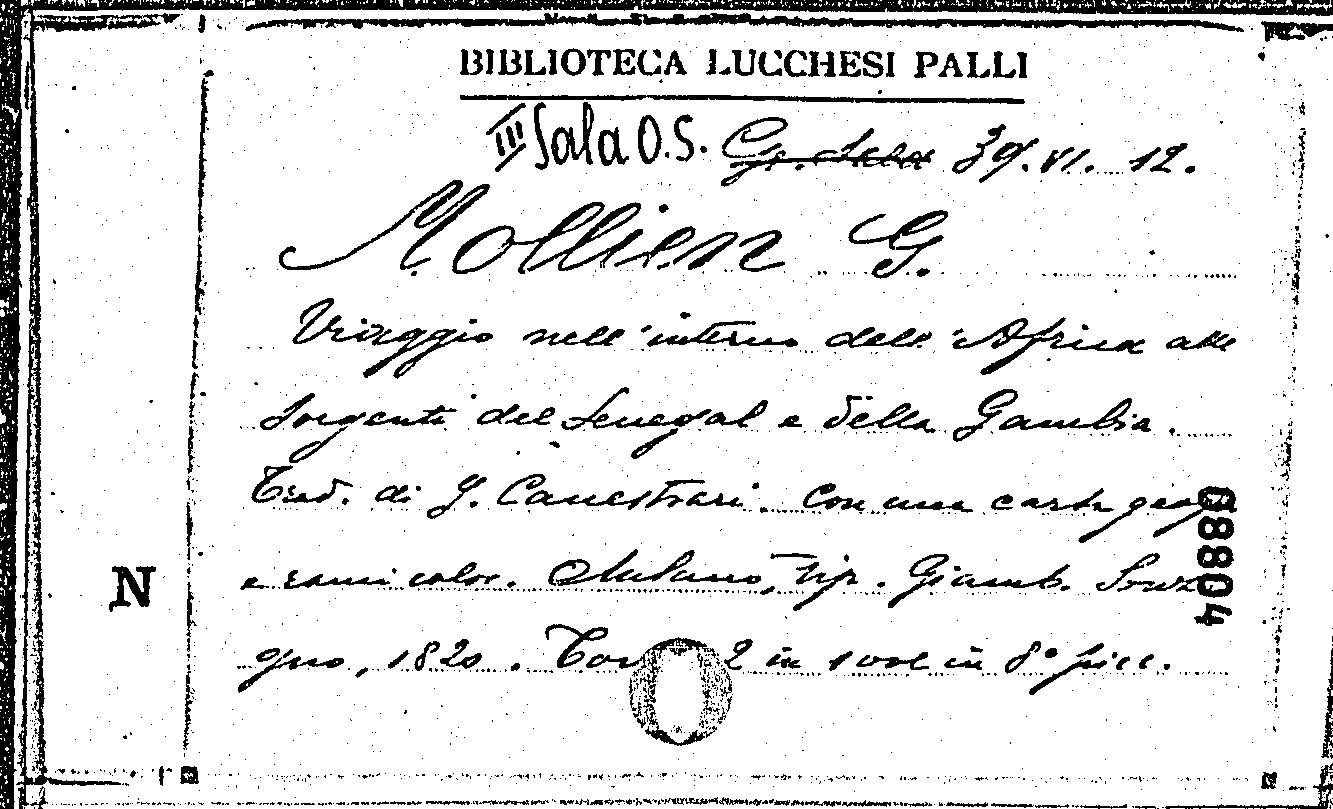 BIBLIOTECA LUCCHESI PALLI
III Sala O.S. Gr. Sala 39. VI. 12.
Mollien G.
Viaggio nell'interno dell'Africa alle
sorgenti del Senegal e della Gambia.
Trad. di G. Canestrari. Con una carta geogr.
e rami color. Milano, tip. Giamb. Sonzo
gno, 1820. Tom 2 in 1 vol in 8° picc.
08804
N